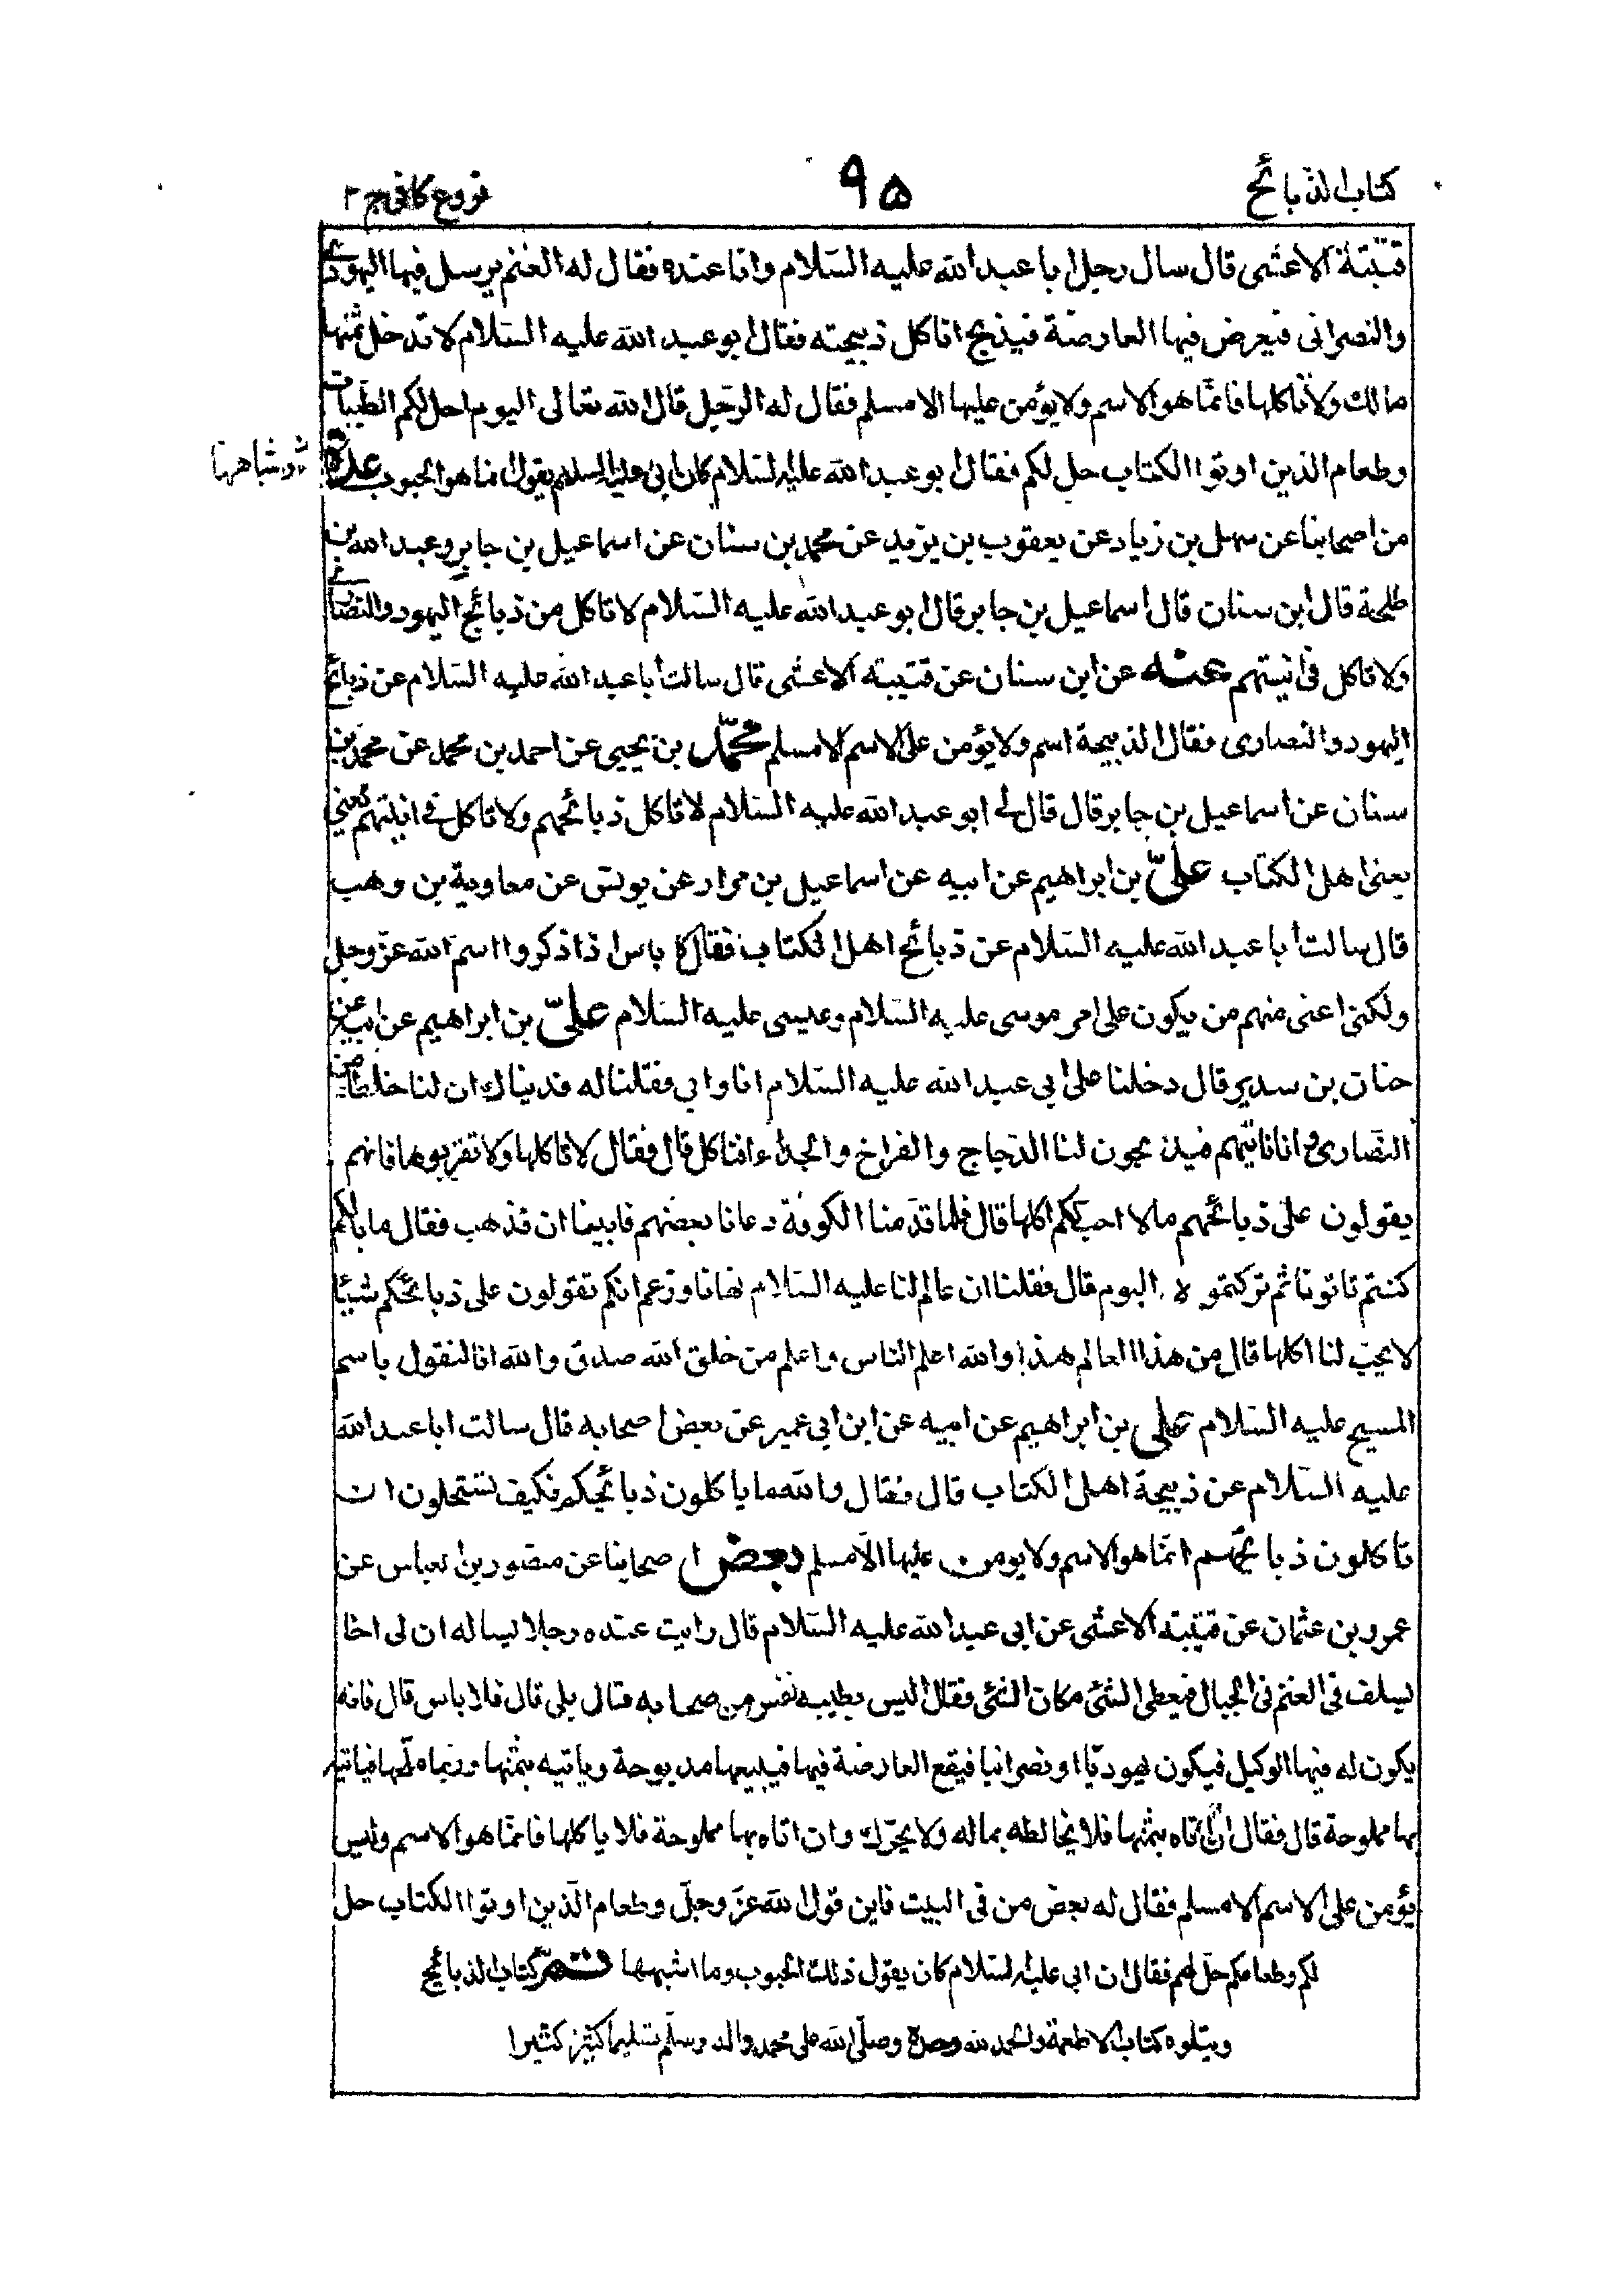 كتاب الذبائح
٩٥
فروع كافى ج ٢
قتيبة الاعشى قال سال رجل ابا عبد الله عليه السّلام وانا عنده فقال له الغنم يرسل فيها اليهودى
والنصرانى فيعرض فيها العارضة فيذبح اناكل ذبيحته فقال ابو عبد الله عليه السّلام لا تدخل ثمنها
مالك ولا تاكلها فانّما هو الاسم ولا يؤمن عليها الا مسلم فقال له الرّجل قال الله تعالى اليوم احل لكم الطّيبات
وطعام الذين اوتوا الكتاب حل لكم فقال ابو عبد الله عليه السّلام كان ابى عليه السلام يقول انما هو الحبوب عدة
من اصحابنا عن سهل بن زياد عن يعقوب بن يزيد عن محمد بن سنان عن اسماعيل بن جابر وعبد الله بن
طلحة قال ابن سنان قال اسماعيل بن جابر قال ابو عبد الله عليه السّلام لا تاكل من ذبائح اليهود والنصارى
ولا تاكل فى انيتهم عنه عن ابن سنان عن قتيبة الاعشى قال سالت ابا عبد الله عليه السّلام عن ذبائح
اليهود والنصارى فقال الذبيحة اسم ولا يؤمن على الاسم الا مسلم محمّد بن يحيى عن احمد بن محمد عن محمد بن
سنان عن اسماعيل بن جابر قال قال لى ابو عبد الله عليه السّلام لا تاكل ذبائحهم ولا تاكل فى انيتهم يعنى
يعنى اهل الكتاب علىّ بن ابراهيم عن ابيه عن اسماعيل بن مرار عن يونس عن معاوية بن وهب
قال سالت ابا عبد الله عليه السّلام عن ذبائح اهل الكتاب فقال لا باس اذا ذكروا اسم الله عزّ وجل
ولكنى اعنى منهم من يكون على امر موسى عليه السّلام وعيسى عليه السّلام علىّ بن ابراهيم عن ابيه عن
حنان بن سدير قال دخلنا على ابى عبد الله عليه السّلام انا وابى فقلنا له فديناك ان لنا خلطاء من
النّصارى وانا ناتيهم فيذبحون لنا الدّجاج والفراخ والجداء افناكل قال فقال لا تاكلها ولا تقربوها فانهم
يقولون على ذبائحهم ما لا احب لكم اكلها قال فلما قدمنا الكوفة دعانا بعضهم فابينا ان نذهب فقال ما بالكم
كنتم تاتونا ثم تركتموه اليوم قال فقلنا ان عالما لنا عليه السّلام نهانا وزعم انكم تقولون على ذبائحكم شيئا
لا يحبّ لنا اكلها قال من هذا العالم هذا والله اعلم الناس واعلم من خلق الله صدق والله انا لنقول باسم
المسيح عليه السّلام على بن ابراهيم عن ابيه عن ابن ابى عمير عن بعض اصحابه قال سالت ابا عبد الله
عليه السّلام عن ذبيحة اهل الكتاب قال فقال والله ما ياكلون ذبائحكم فكيف تستحلون ان
تاكلون ذبائحهم انّما هو الاسم ولا يومن عليها الّا مسلم بعض اصحابنا عن منصور بن العباس عن
عمرو بن عثمان عن قتيبة الاعشى عن ابى عبد الله عليه السّلام قال رايت عنده رجلا يساله ان لى اخا
يسلف فى الغنم فى الجبال فيعطى الشئ مكان الشئ فقال اليس بطيبة نفس من صحابه قال بلى قال فلا باس قال فانه
يكون له فيها الوكيل فيكون يهوديّا او نصرانيا فيقع العارضة فيها فيبيعها مذبوحة وياتيه بثمنها وربما ملّحها فياتيه
بها مملوحة قال فقال ان اتاه بثمنها فلا يخالطه بماله ولا يحرّك وان اتاه بها مملوحة فلا ياكلها فانّما هو الاسم وليس
يؤمن على الاسم الا مسلم فقال له بعض من فى البيت فاين قول الله عزّ وجلّ وطعام الّذين اوتوا الكتاب حل
لكم وطعامكم حلّ لهم فقال ان ابى عليه السّلام كان يقول ذلك الحبوب وما اشبهها تمّ كتاب الذبائح
ويتلوه كتاب الاطعمة والحمد لله وحده وصلّى الله على محمد واله وسلّم تسليما كثيرا كثيرا